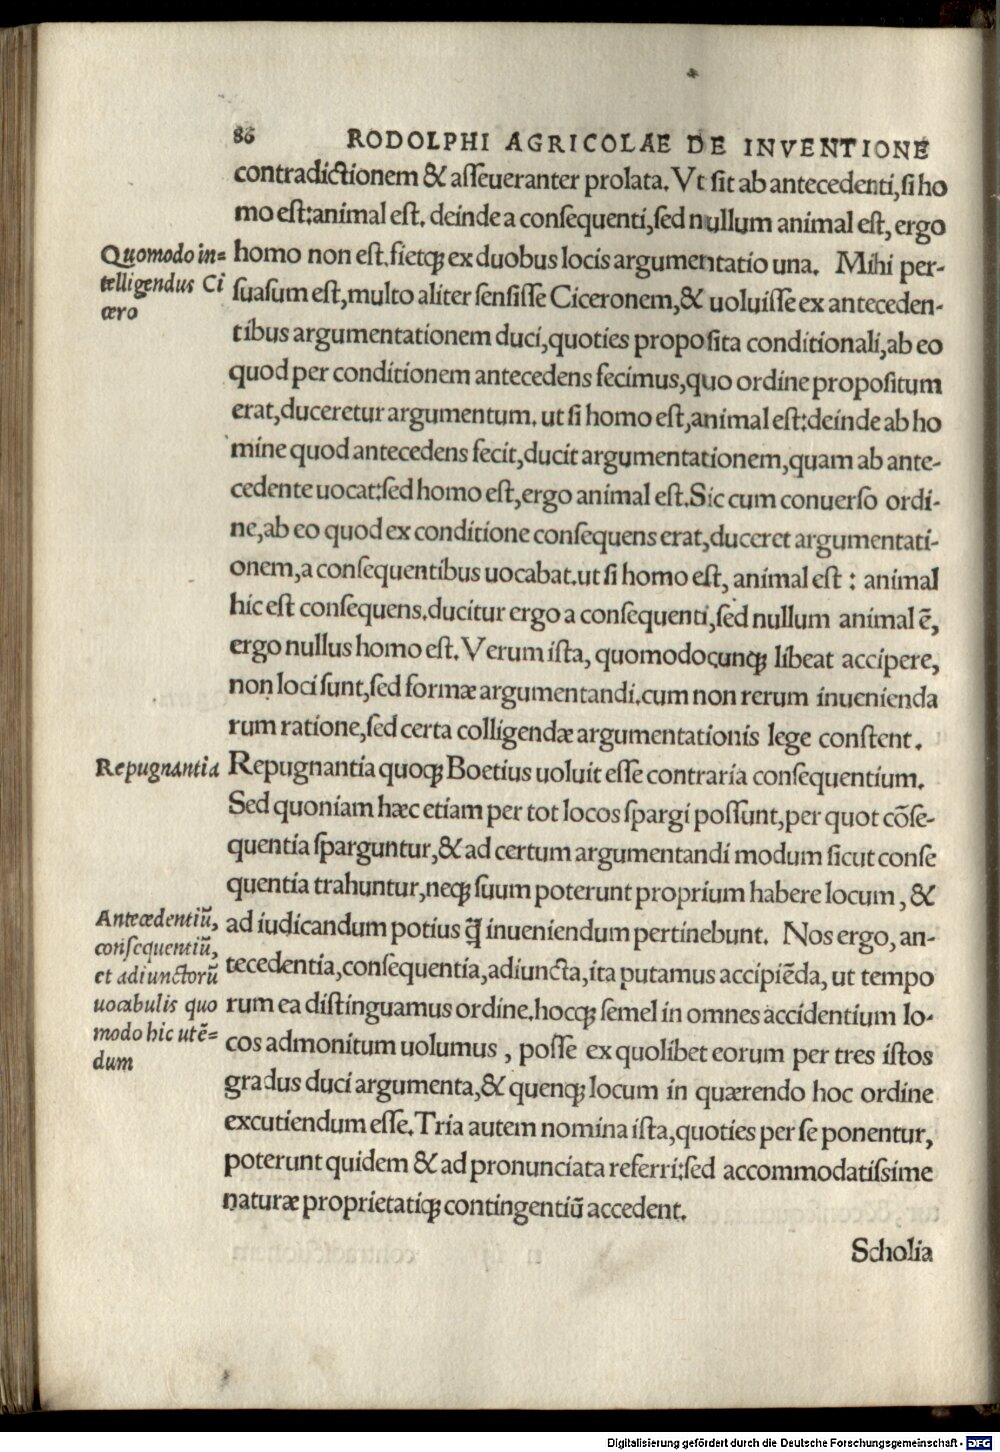 86 RODOLPHI AGRICOLAE DE INVENTIONE
contradictionem & aſſeueranter prolata. Vt ſit ab antecedenti, ſi ho
mo eſt: animal eſt. deinde a conſequenti, ſed nullum animal eſt, ergo
homo non eſt. fietqꝫ ex duobus locis argumentatio una. Mihi per-
ſuaſum eſt, multo aliter ſenſiſſe Ciceronem, & uoluiſſe ex anteceden-
tibus argumentationem duci, quoties propoſita conditionali, ab eo
quod per conditionem antecedens fecimus, quo ordine propoſitum
erat, duceretur argumentum. ut ſi homo eſt, animal eſt: deinde ab ho
mine quod antecedens fecit, ducit argumentationem, quam ab ante-
cedente uocat: ſed homo eſt, ergo animal eſt. Sic cum conuerſo ordi-
ne, ab eo quod ex conditione conſequens erat, duceret argumentati-
onem, a conſequentibus uocabat. ut ſi homo eſt, animal eſt : animal
hic eſt conſequens. ducitur ergo a conſequenti, ſed nullum animal ē,
ergo nullus homo eſt. Verum iſta, quomodocunqꝫ libeat accipere,
non loci ſunt, ſed formæ argumentandi. cum non rerum inuenienda
rum ratione, ſed certa colligendæ argumentationis lege conſtent.
Repugnantia quoqꝫ Boetius uoluit eſſe contraria conſequentium.
Sed quoniam hæc etiam per tot locos ſpargi poſſunt, per quot cōſe-
quentia ſparguntur, & ad certum argumentandi modum ſicut conſe
quentia trahuntur, neqꝫ ſuum poterunt proprium habere locum, &
ad iudicandum potius q̃ inueniendum pertinebunt. Nos ergo, an-
tecedentia, conſequentia, adiuncta, ita putamus accipiēda, ut tempo
rum ea diſtinguamus ordine. hocqꝫ ſemel in omnes accidentium lo-
cos admonitum uolumus, poſſe ex quolibet eorum per tres iſtos
gradus duci argumenta, & quenqꝫ locum in quærendo hoc ordine
excutiendum eſſe. Tria autem nomina iſta, quoties per ſe ponentur,
poterunt quidem & ad pronunciata referri: ſed accommodatiſsime
naturæ proprietatiqꝫ contingentiū accedent.
Scholia
Quomodo in=
telligendus Ci
cero
Repugnantia
Antecedentiū,
conſequentiū,
et adiunctorū
uocabulis quo
modo hic utē=
dum
Digitalisierung gefördert durch die Deutsche Forschungsgemeinschaft - DFG